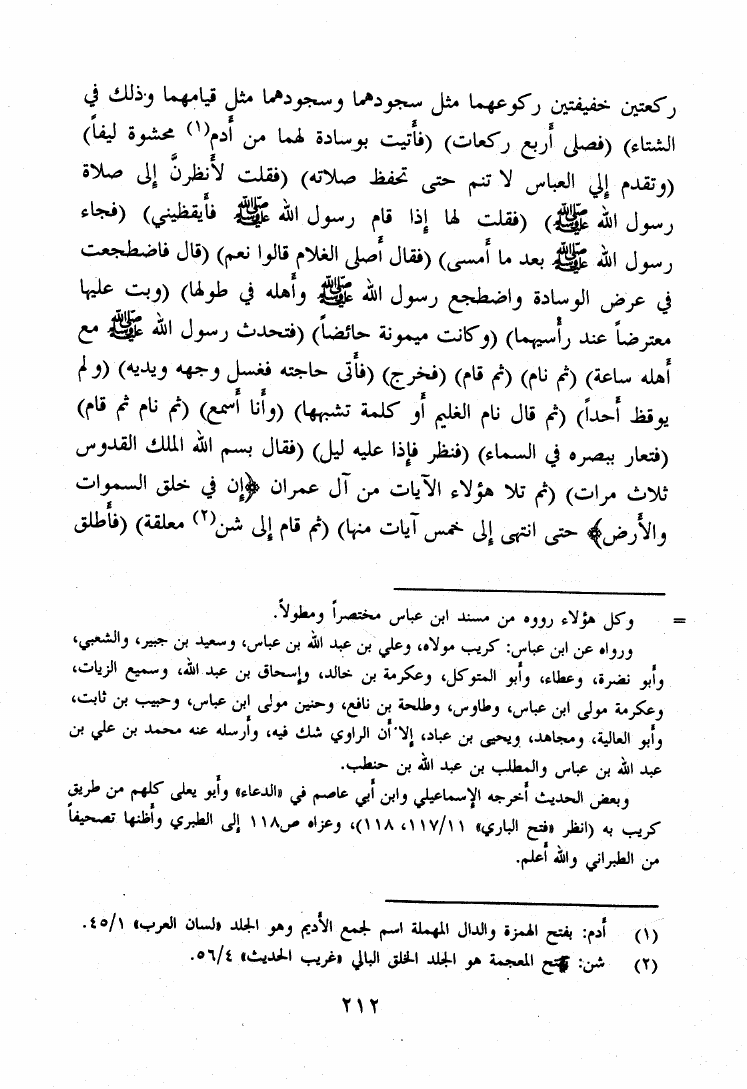 ركعتين خفيفتين ركوعهما مثل سجودهما وسجودهما مثل قيامهما وذلك في
الشتاء) (فصلى أربع ركعات) (فأتيت بوسادة لهما من أدم(١) محشوة ليفاً)
(وتقدم إلي العباس لا تنم حتى تحفظ صلاته) (فقلت لأنظرنَّ إلى صلاة
رسول الله ﷺ) (فقلت لها إذا قام رسول الله ﷺ فأيقظيني) (فجاء
رسول الله ﷺ بعد ما أمسى) (فقال أصلى الغلام قالوا نعم) (قال فاضطجعت
في عرض الوسادة واضطجع رسول الله ﷺ وأهله في طولها) (وبت عليها
معترضاً عند رأسيهما) (وكانت ميمونة حائضاً) (فتحدث رسول الله ﷺ مع
أهله ساعة) (ثم نام) (ثم قام) (فخرج) (فأتى حاجته فغسل وجهه ويديه) (ولم
يوقظ أحداً) (ثم قال نام الغليم أو كلمة تشبهها) (وأنا أسمع) (ثم نام ثم قام)
(فتعار ببصره في السماء) (فنظر فإذا عليه ليل) (فقال بسم الله الملك القدوس
ثلاث مرات) (ثم تلا هؤلاء الآيات من آل عمران ﴿إن في خلق السموات
والأرض﴾ حتى انتهى إلى خمس آيات منها) (ثم قام إلى شن(٢) معلقة) (فأطلق
= وكل هؤلاء رووه من مسند ابن عباس مختصراً ومطولاً.
ورواه عن ابن عباس: كريب مولاه، وعلي بن عبد الله بن عباس، وسعيد بن جبير، والشعبي،
وأبو نضرة، وعطاء، وأبو المتوكل، وعكرمة بن خالد، وإسحاق بن عبد الله، وسميع الزيات،
وعكرمة مولى ابن عباس، وطاوس، وطلحة بن نافع، وحنين مولى ابن عباس، وحبيب بن ثابت،
وأبو العالية، ومجاهد، ويحيى بن عباد، إلا أن الراوي شك فيه، وأرسله عنه محمد بن علي بن
عبد الله بن عباس والمطلب بن عبد الله بن حنطب.
وبعض الحديث أخرجه الإسماعيلي وابن أبي عاصم في «الدعاء» وأبو يعلى كلهم من طريق
كريب به (انظر «فتح الباري» ١١٧/١١، ١١٨)، وعزاه ص١١٨ إلى الطبري وأظنها تصحيفاً
من الطبراني والله أعلم.
(١) أدم: بفتح الهمزة والدال المهملة اسم لجمع الأديم وهو الجلد «لسان العرب» ٤٥/١.
(٢) شن: بفتح المعجمة هو الجلد الخلق البالي «غريب الحديث» ٥٦/٤.
٢١٢